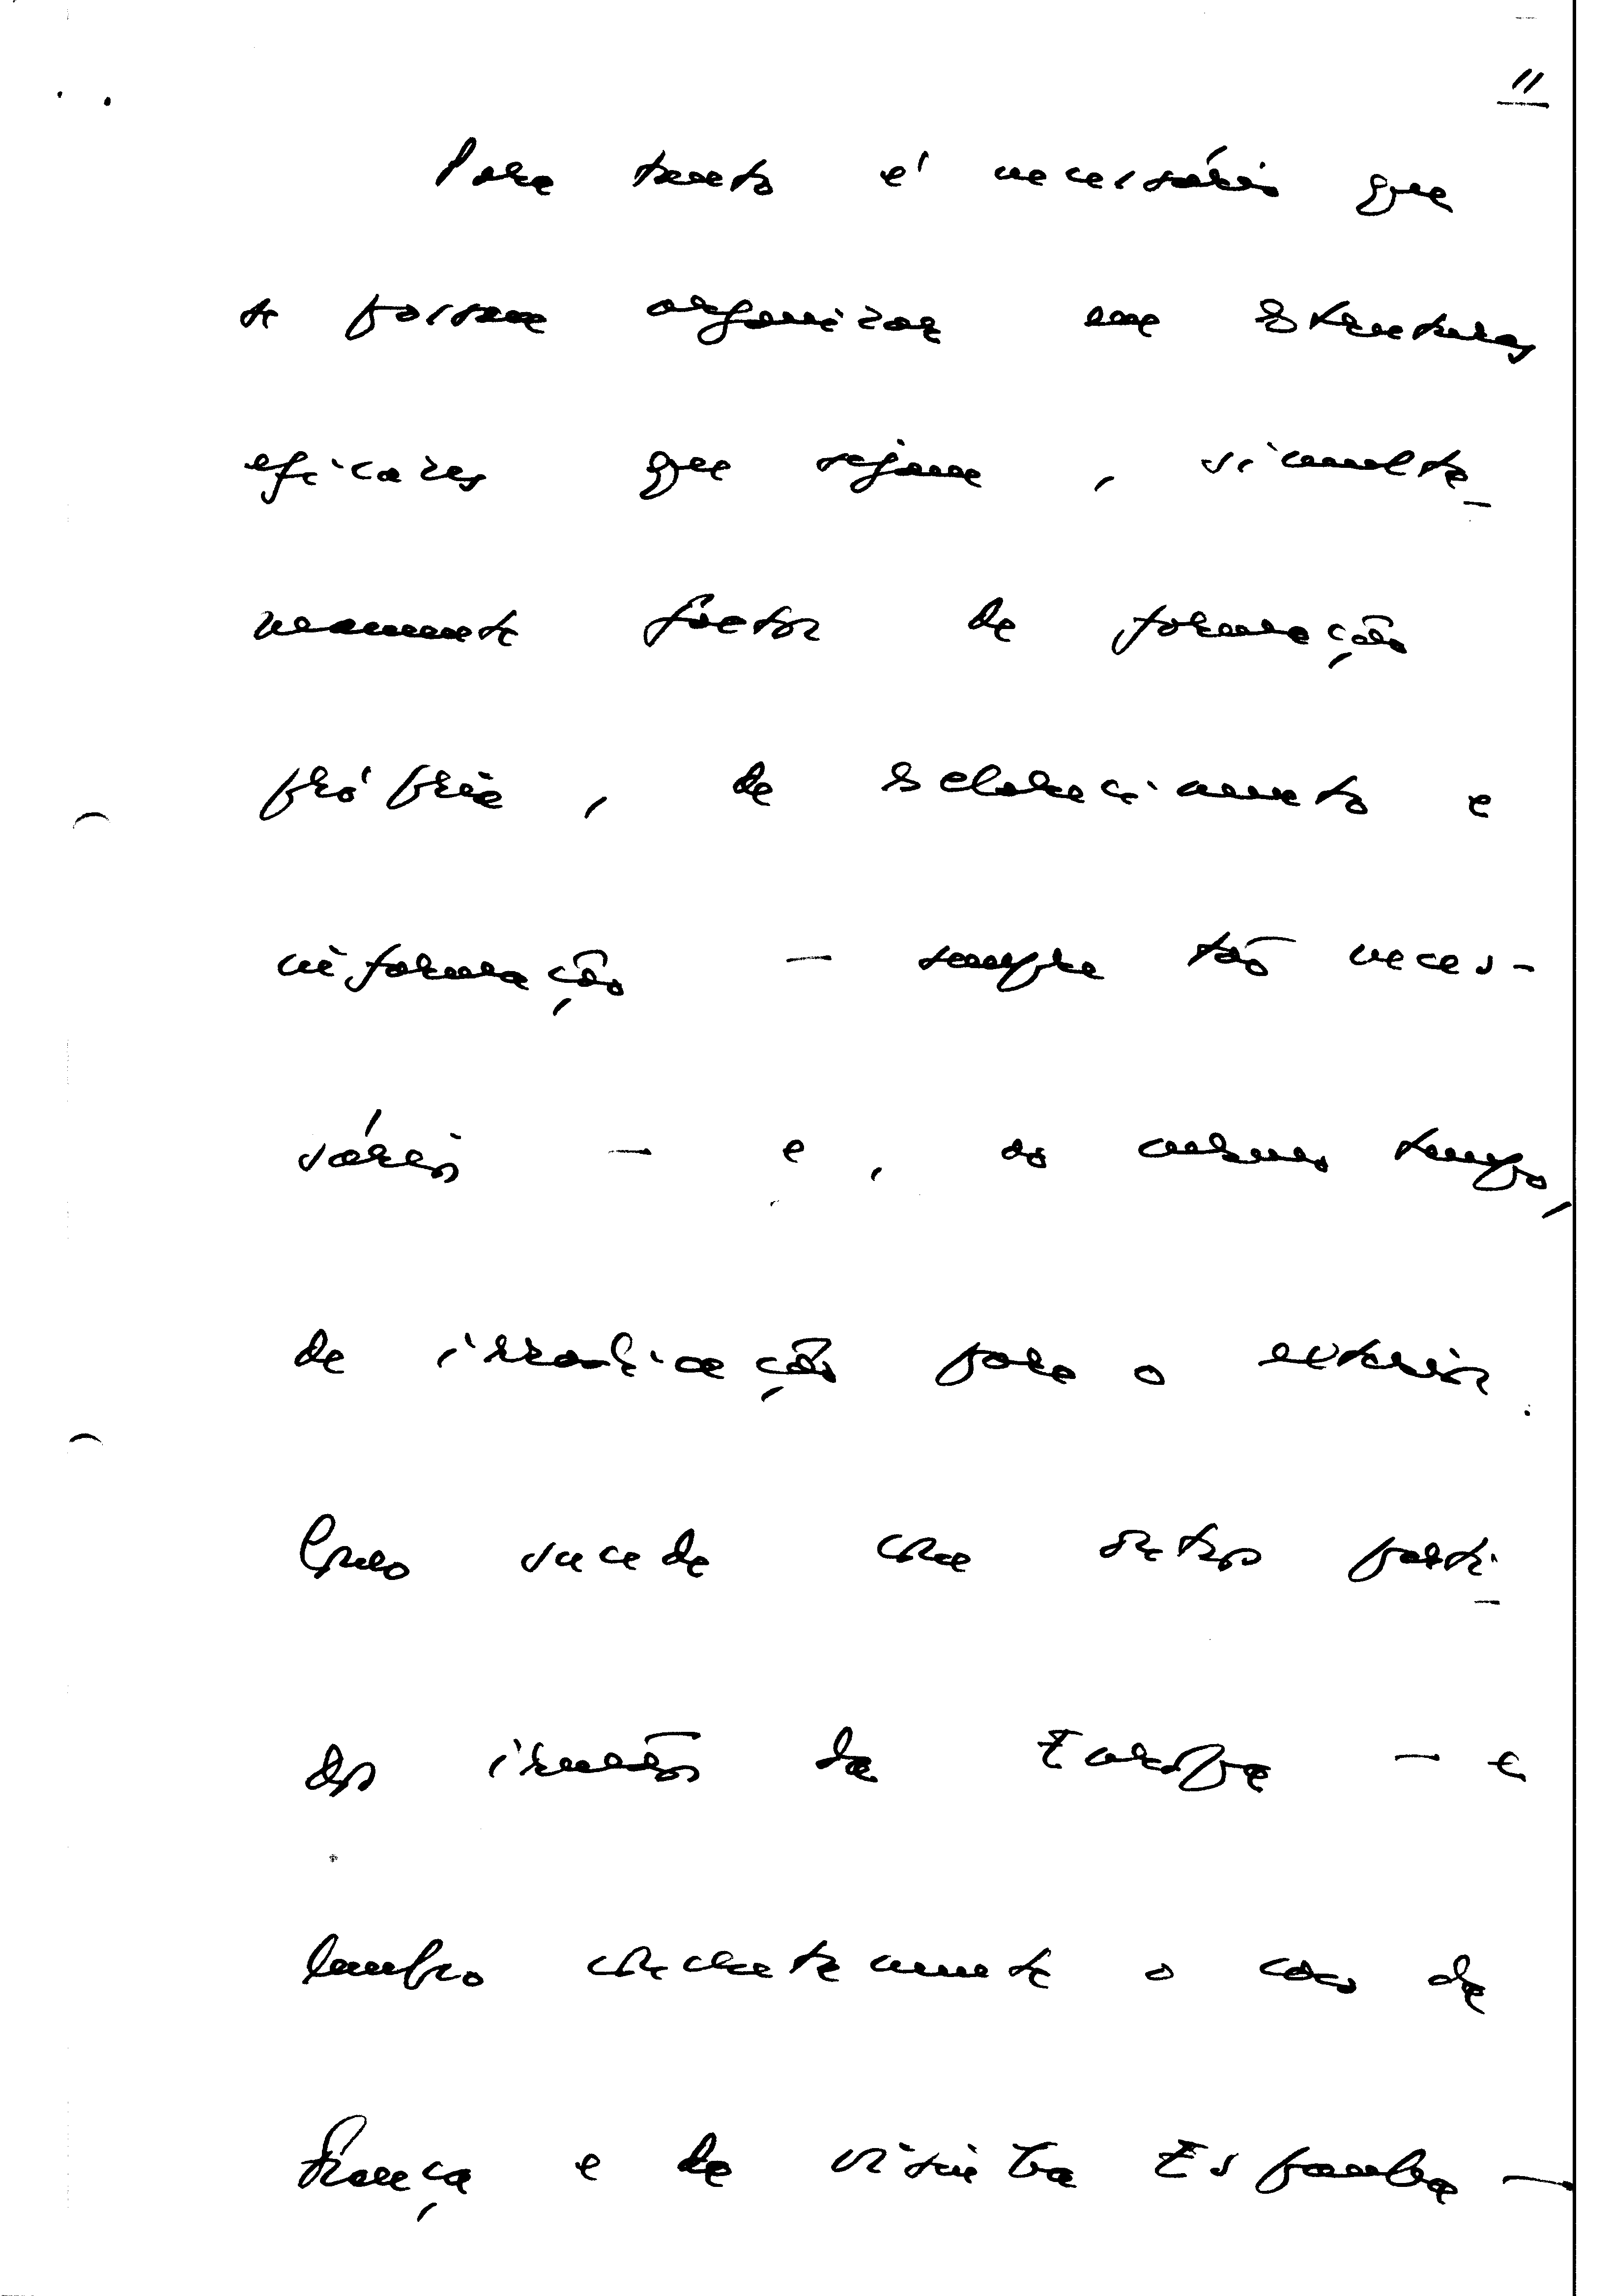 11
Para tanto é necessário que
se possam organizar em estruturas
eficazes que sejam, simulta-
neamente factor de formação
própria, de esclarecimento e
informação - sempre tão neces-
sário - e, ao mesmo tempo,
de irradiação para o exterior.
Como sucede com outros parti-
dos irmãos da Europa - e
lembro concretamente o caso da
França e da vizinha Espanha -